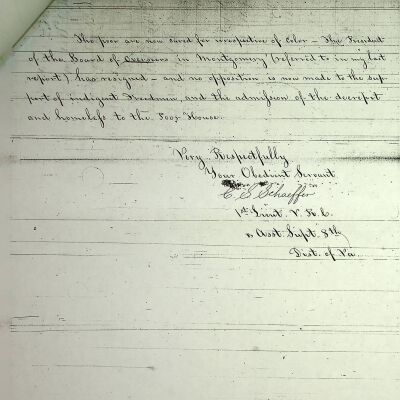 The poor are now cared for irrespective of Color – The President
of the Board of Overseers in Montgomery (referred to in my last
report) has resigned – and no opposition is now made to the sup-
port of indigent Freedmen, and the admission of the decrepit
and homeless to the Poor House.
Very Respectfully
Your Obedient Servant
C. S. Schaeffer
1st Lieut. V. R. C.
& Asst. Supt. 8th
Dist. of Va.